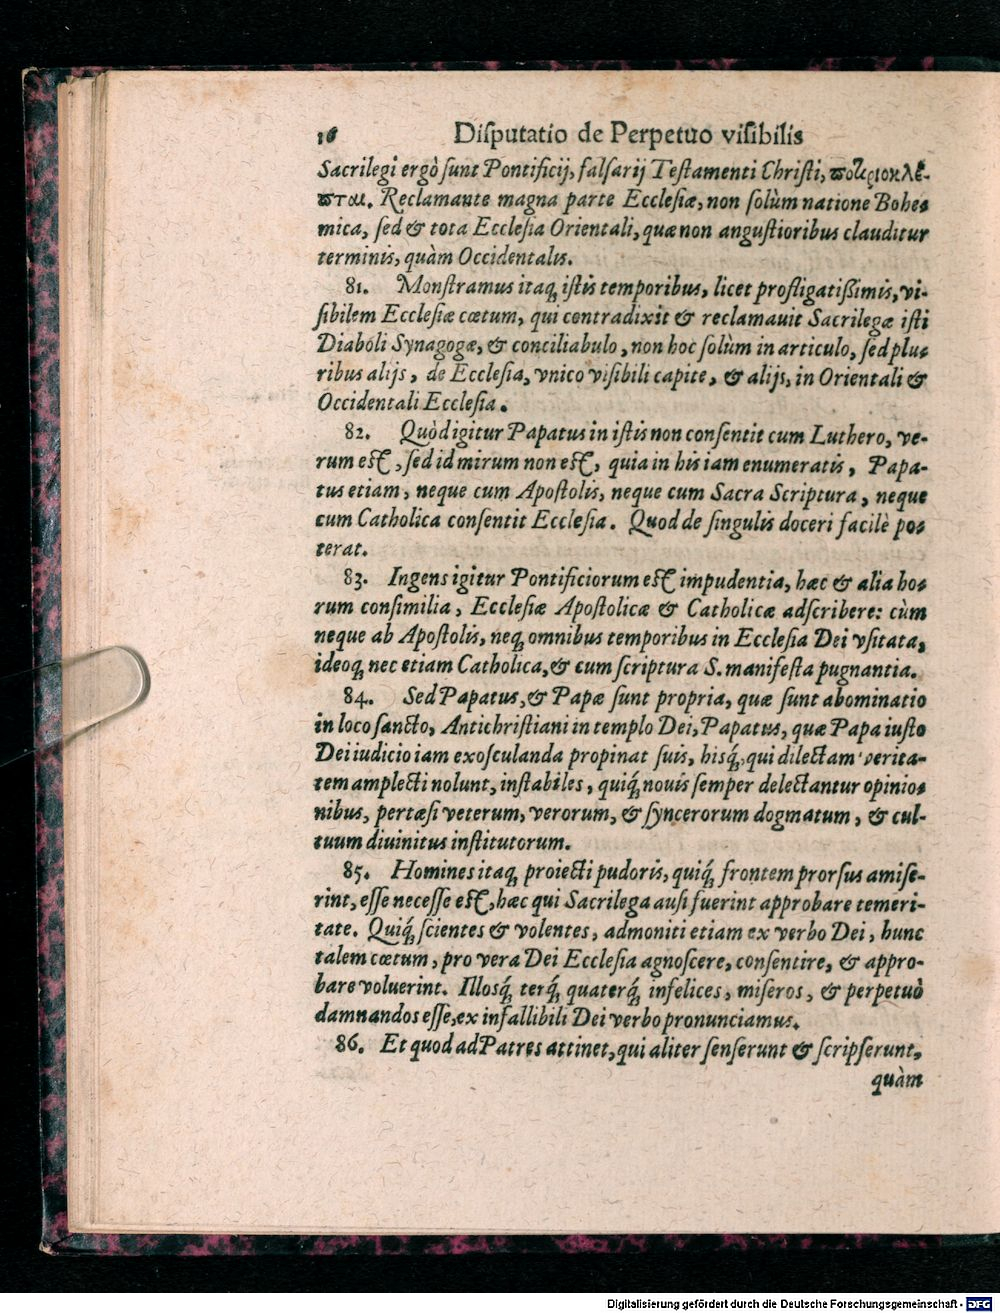 16 Diſputatio de Perpetuo viſibilis
Sacrilegi ergò ſunt Pontificij, falſarij Teſtamenti Chriſti, ποτηριοκλέ-
πται. Reclamante magna parte Eccleſiæ, non ſolùm natione Bohe-
mica, ſed & tota Eccleſia Orientali, quæ non anguſtioribus clauditur
terminis, quàm Occidentalis.
81. Monſtramus itaq́ iſtis temporibus, licet profligatißimis, vi-
ſibilem Eccleſiæ cœtum, qui contradixit & reclamauit Sacrilegæ iſti
Diaboli Synagogæ, & conciliabulo, non hoc ſolùm in articulo, ſed plu-
ribus alijs, de Eccleſia, vnico viſibili capite, & alijs, in Orientali &
Occidentali Eccleſia.
82. Quòd igitur Papatus in iſtis non conſentit cum Luthero, ve-
rum eſt, ſed id mirum non eſt, quia in his iam enumeratis, Papa-
tus etiam, neque cum Apoſtolis, neque cum Sacra Scriptura, neque
cum Catholica conſentit Eccleſia. Quod de ſingulis doceri facilè po-
terat.
83. Ingens igitur Pontificiorum eſt impudentia, hæc & alia ho-
rum conſimilia, Eccleſiæ Apoſtolicæ & Catholicæ adſcribere: cùm
neque ab Apoſtolis, neq́ omnibus temporibus in Eccleſia Dei vſitata,
ideoq́ nec etiam Catholica, & cum ſcriptura S. manifeſta pugnantia.
84. Sed Papatus, & Papæ ſunt propria, quæ ſunt abominatio
in loco ſancto, Antichriſtiani in templo Dei, Papatus, quæ Papa iuſto
Dei iudicio iam exoſculanda propinat ſuis, hisq́, qui dilectam verita-
tem amplecti nolunt, inſtabiles, quiq́ nouis ſemper delectantur opinio-
nibus, pertæſi veterum, verorum, & ſyncerorum dogmatum, & cul-
tuum diuinitus inſtitutorum.
85. Homines itaq́ proiecti pudoris, quiq́ frontem prorſus amiſe-
rint, eſſe neceſſe eſt, hæc qui Sacrilega auſi fuerint approbare temeri-
tate. Quiq́ ſcientes & volentes, admoniti etiam ex verbo Dei, hunc
talem cœtum, pro vera Dei Eccleſia agnoſcere, conſentire, & appro-
bare voluerint. Illosq́ terq́ quaterq́ infelices, miſeros, & perpetuò
damnandos eſſe, ex infallibili Dei verbo pronunciamus.
86. Et quod ad Patres attinet, qui aliter ſenſerunt & ſcripſerunt,
quàm
Digitalisierung gefördert durch die Deutsche Forschungsgemeinschaft - DFG